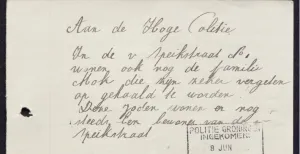 Aan de Hoge Politie
In de v. Speikstraat
wonen ook nog de familie
Mok die zijn zeker vergeten
op gehaald te worden
Deze joden wonen er nog
steeds Een bewoner van de
Speikstraat
POLITIE GRONINGEN
INGEKOMEN
8 JUN